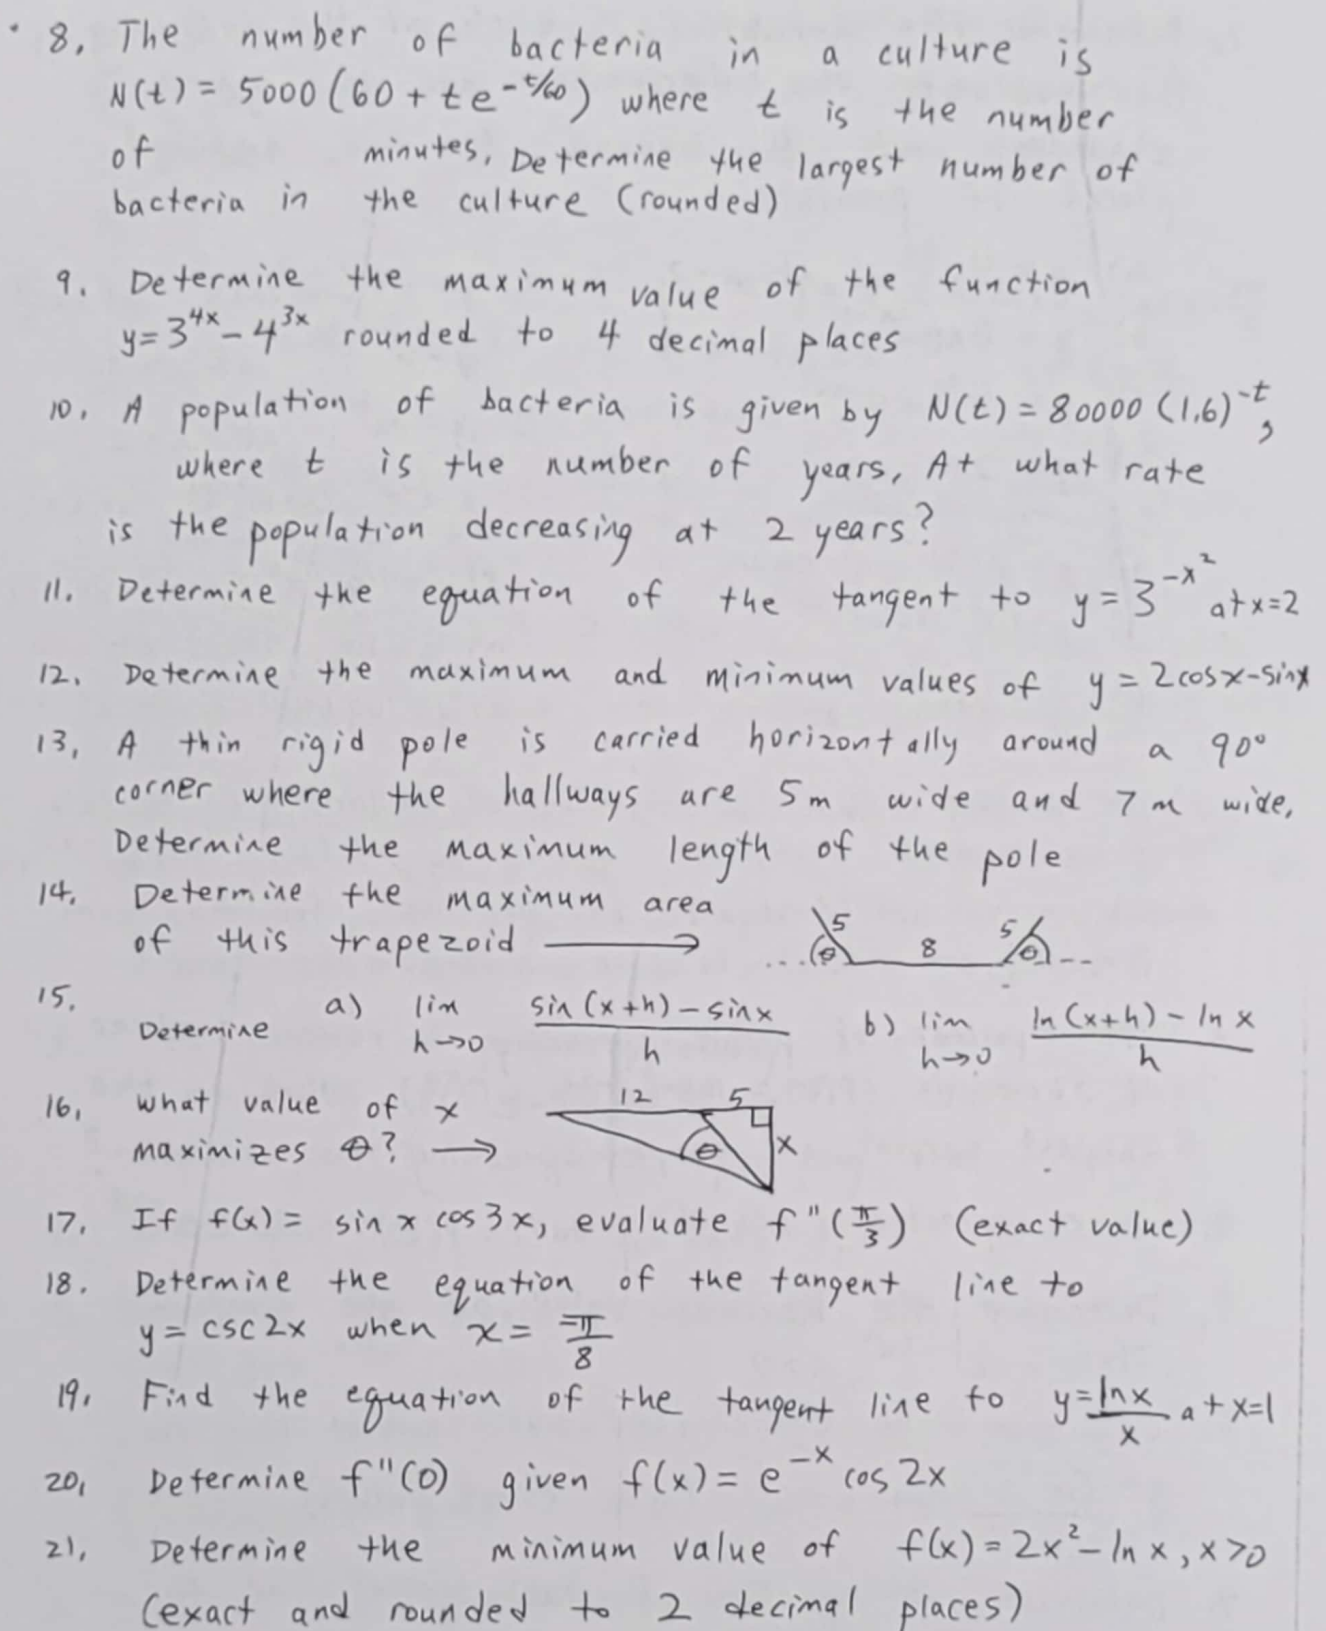 8. The number of bacteria in a culture is
N(t) = 5000 (60 + te^{-t/60}) where t is the number
of minutes. Determine the largest number of
bacteria in the culture (rounded)
9. Determine the maximum value of the function
y = 3^{4x} - 4^{3x} rounded to 4 decimal places
10. A population of bacteria is given by N(t) = 80000 (1.6)^{-t},
where t is the number of years. At what rate
is the population decreasing at 2 years?
11. Determine the equation of the tangent to y = 3^{-x^2} at x=2
12. Determine the maximum and minimum values of y = 2cosx-sinx
13. A thin rigid pole is carried horizontally around a 90°
corner where the hallways are 5m wide and 7m wide.
Determine the maximum length of the pole
14. Determine the maximum area
of this trapezoid → 5 θ 8 5 θ
15. Determine a) lim h→0 \frac{sin(x+h) - sinx}{h} b) lim h→0 \frac{ln(x+h) - ln x}{h}
16. What value of x
maximizes θ? → 12 5 θ x
17. If f(x) = sin x cos 3x, evaluate f"(π/3) (exact value)
18. Determine the equation of the tangent line to
y = csc 2x when x = \frac{-π}{8}
19. Find the equation of the tangent line to y = \frac{lnx}{x} at x=1
20. Determine f"(0) given f(x) = e^{-x} cos 2x
21. Determine the minimum value of f(x) = 2x² - ln x, x>0
(exact and rounded to 2 decimal places)